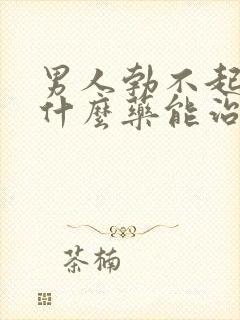 男人勃不起
什麼藥能治
茶楠